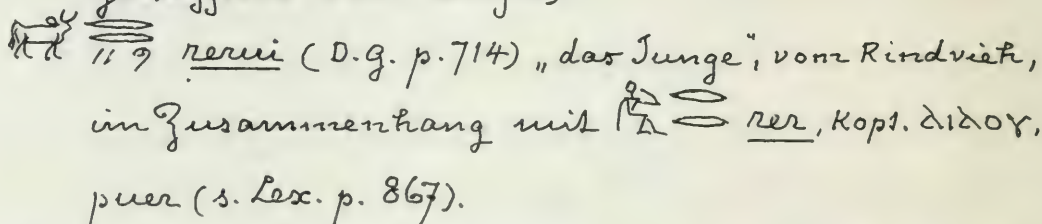 𓃒 𓂋𓂋𓏭𓏲 rerui (D.G. p. 714) „das Junge“, vom Rindvieh,
im Zusammenhang mit 𓀔 𓂋𓂋 rer, Kopt. ⲗⲓⲗⲟⲩ,
puer (s. Lex. p. 867).